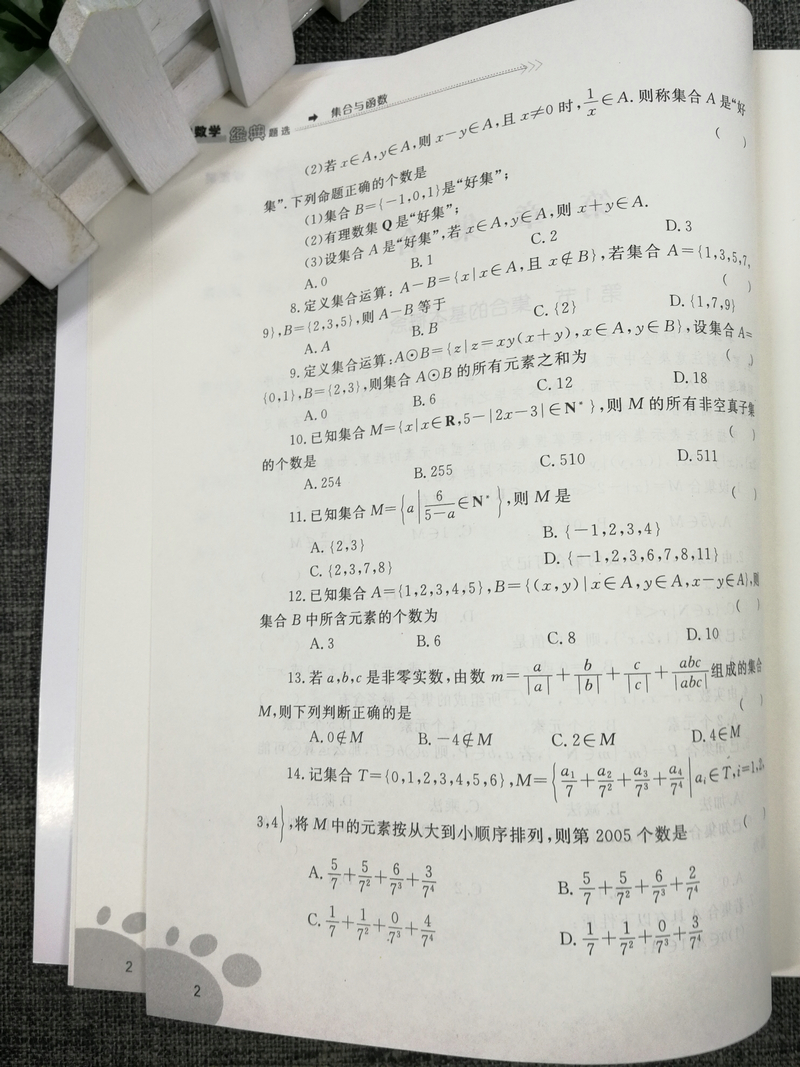 数学 经典 题选 ➡ 集合与函数
(2)若 x∈A,y∈A,则 x−y∈A,且 x≠0 时,1/x∈A. 则称集合 A 是“好
集”. 下列命题正确的个数是 ( )
(1)集合 B={−1,0,1}是“好集”;
(2)有理数集 Q 是“好集”;
(3)设集合 A 是“好集”,若 x∈A,y∈A,则 x+y∈A.
A. 0 B. 1 C. 2 D. 3
8. 定义集合运算: A−B={x|x∈A,且 x∉B},若集合 A={1,3,5,7,
9},B={2,3,5},则 A−B 等于 ( )
A. A B. B C. {2} D. {1,7,9}
9. 定义集合运算:A⊙B={z|z=xy(x+y),x∈A,y∈B},设集合 A=
{0,1},B={2,3},则集合 A⊙B 的所有元素之和为 ( )
A. 0 B. 6 C. 12 D. 18
10. 已知集合 M={x|x∈R,5−|2x−3|∈N*},则 M 的所有非空真子集
的个数是 ( )
A. 254 B. 255 C. 510 D. 511
11. 已知集合 M={a|6/(5−a)∈N*},则 M 是 ( )
A. {2,3} B. {−1,2,3,4}
C. {2,3,7,8} D. {−1,2,3,6,7,8,11}
12. 已知集合 A={1,2,3,4,5},B={(x,y)|x∈A,y∈A,x−y∈A},则
集合 B 中所含元素的个数为 ( )
A. 3 B. 6 C. 8 D. 10
13. 若 a,b,c 是非零实数,由数 m=a/|a|+b/|b|+c/|c|+abc/|abc|组成的集合
M,则下列判断正确的是 ( )
A. 0∉M B. −4∉M C. 2∈M D. 4∈M
14. 记集合 T={0,1,2,3,4,5,6},M={a₁/7+a₂/7²+a₃/7³+a₄/7⁴|aᵢ∈T,i=1,2,
3,4},将 M 中的元素按从大到小顺序排列,则第 2005 个数是 ( )
A. 5/7+5/7²+6/7³+3/7⁴ B. 5/7+5/7²+6/7³+2/7⁴
C. 1/7+1/7²+0/7³+4/7⁴ D. 1/7+1/7²+0/7³+3/7⁴
2
2